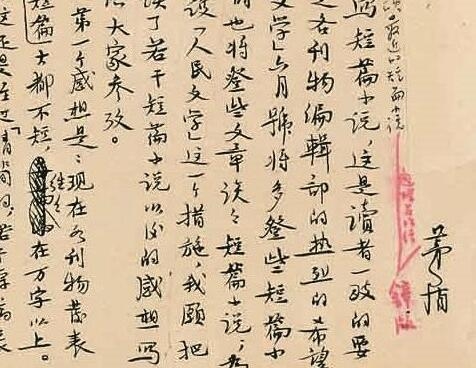 茅盾
鋅版
最近的短篇小说
写短篇小说，這是讀者一致的要
各刊物编輯部的热烈的希望
文学」六月號将多登些短篇小
也将登些文章谈々短篇小说，为
「人民文学」这一个措施，我願把
读了若干短篇小说以后的感想写
大家参攷。
第一个感想是：现在各刊物发表
短篇大都不短，在万字以上。